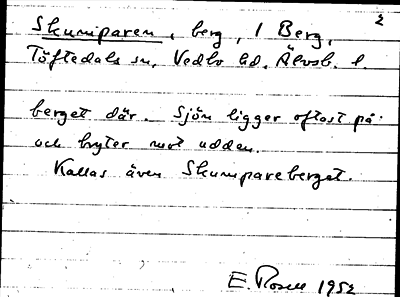 2
Skumparen, berg, / Berg,
Töftedals sn, Vedbo hd, Älvsb. l.
berget där. Sjön ligger oftast på
och bryter mot udden.
Kallas även Skumpareberget.
E. Rosell 1952